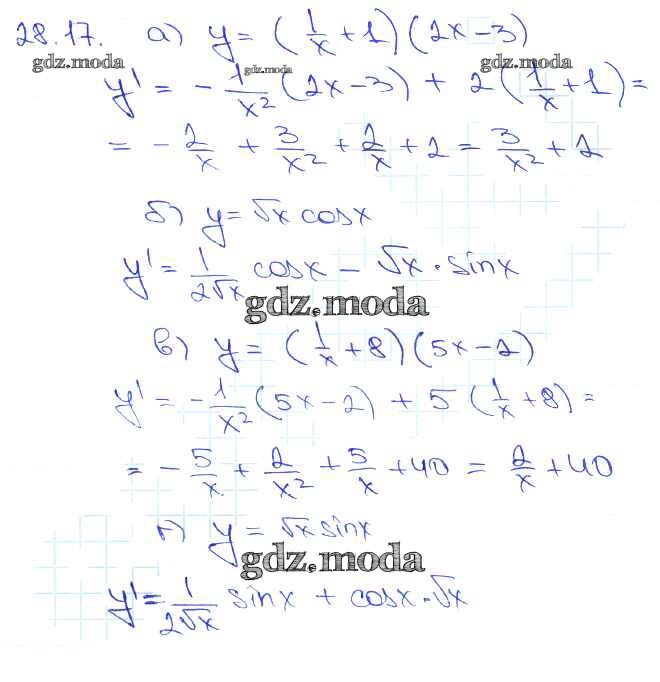 28.17. а) y = (1/x + 1)(2x − 3)
gdz.moda gdz.moda gdz.moda
y' = − 1/x² (2x − 3) + 2(1/x + 1) =
= − 2/x + 3/x² + 2/x + 2 = 3/x² + 2
б) y = √x cosx
y' = 1/2√x cosx − √x · sinx
gdz.moda
в) y = (1/x + 8)(5x − 2)
y' = − 1/x² (5x − 2) + 5 (1/x + 8) =
= − 5/x + 2/x² + 5/x + 40 = 2/x + 40
г) y = √x sinx
gdz.moda
y' = 1/2√x sinx + cosx · √x